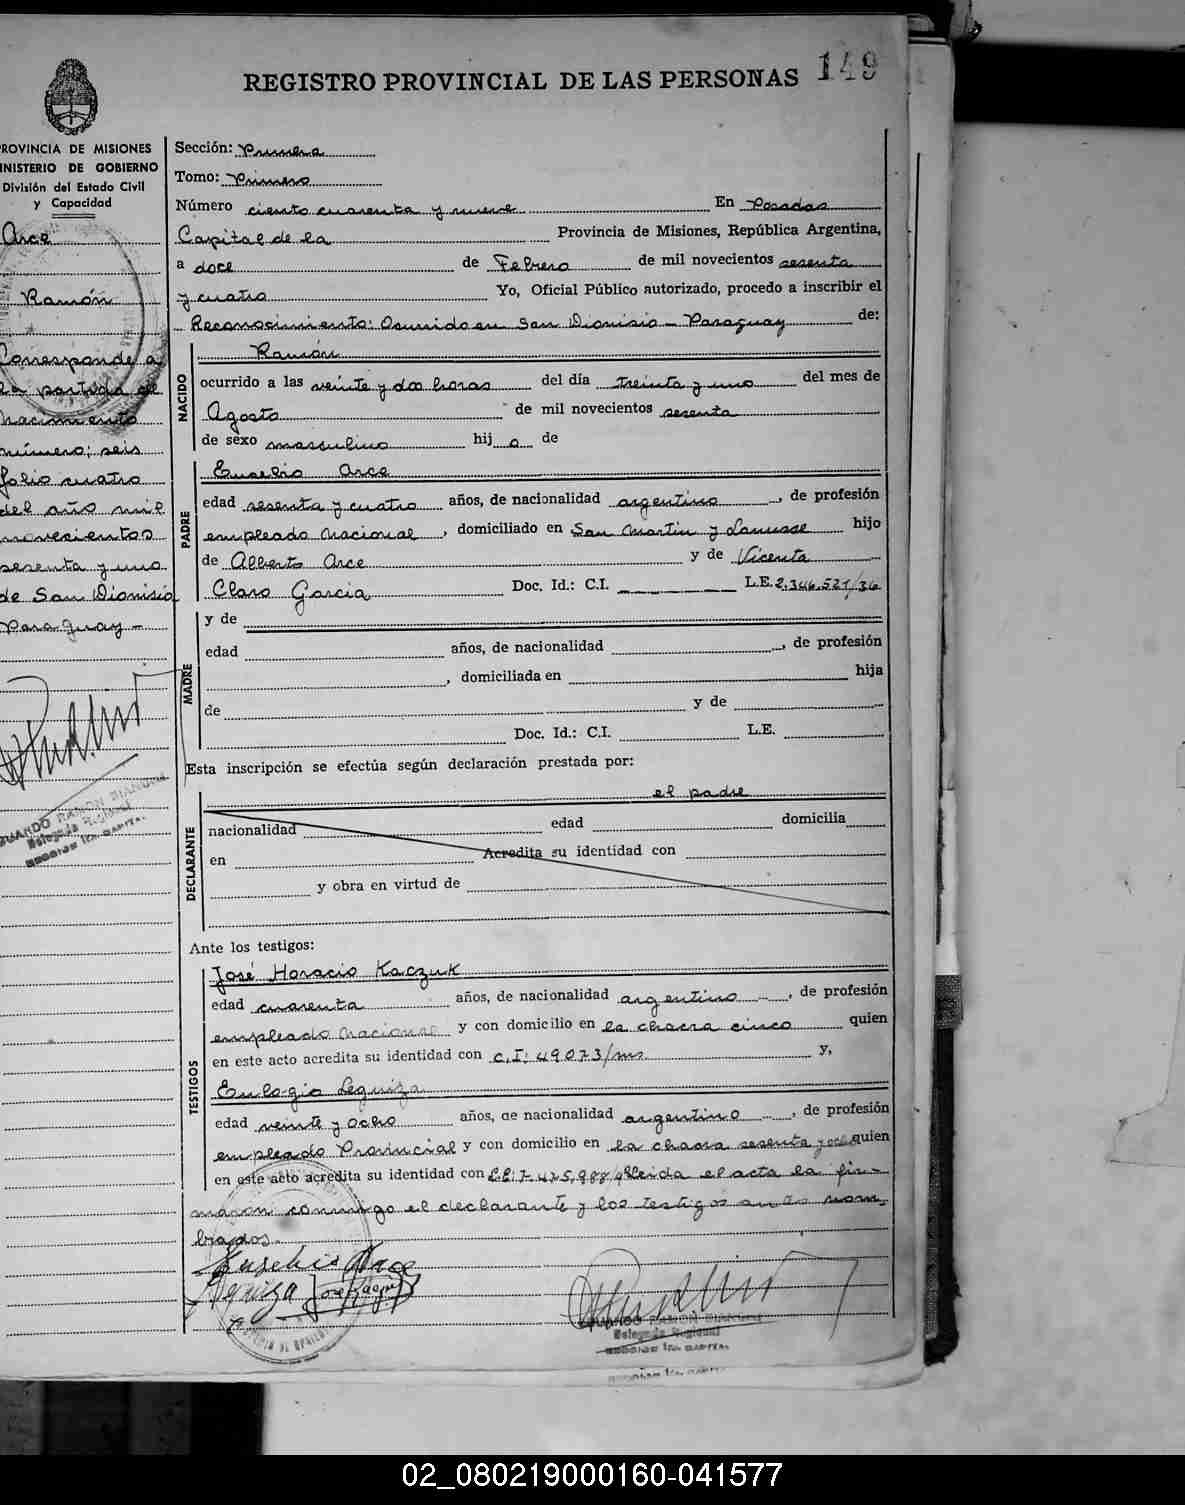 149
REGISTRO PROVINCIAL DE LAS PERSONAS
PROVINCIA DE MISIONES
MINISTERIO DE GOBIERNO
División del Estado Civil
y Capacidad
Arce
Ramón
Corresponde a
la partida de
nacimiento
número; seis
folio cuatro
del año mil
novecientos
sesenta y uno
de San Dionisio
Paraguay -
Sección: Primera
Tomo: Primero
Número ciento cuarenta y nueve En Posadas
Capital de la Provincia de Misiones, República Argentina,
a doce de Febrero de mil novecientos sesenta
y cuatro Yo, Oficial Público autorizado, procedo a inscribir el
Reconocimiento: Ocurrido en San Dionisio - Paraguay de:
NACIDO
Ramón
ocurrido a las veinte y dos horas del día treinta y uno del mes de
Agosto de mil novecientos sesenta
de sexo masculino hij o de
PADRE
Eusebio Arce
edad sesenta y cuatro años, de nacionalidad argentino, de profesión
empleado nacional, domiciliado en San Martin y Lanusse hijo
de Alberto Arce y de Vicenta
Claro Garcia Doc. Id.: C.I. L.E. 2.346.521/36
MADRE
y de
edad años, de nacionalidad , de profesión
, domiciliada en hija
de y de
Doc. Id.: C.I. L.E.
Esta inscripción se efectúa según declaración prestada por:
el padre
DECLARANTE
nacionalidad edad domicilia
en Acredita su identidad con
y obra en virtud de
Ante los testigos:
TESTIGOS
José Horacio Kaczuk
edad cuarenta años, de nacionalidad argentino, de profesión
empleado nacional y con domicilio en la chacra cinco quien
en este acto acredita su identidad con C.I: 49073/ms. y,
Eulogio Leguiza
edad veinte y ocho años, de nacionalidad argentino, de profesión
empleado Provincial y con domicilio en la chacra sesenta y quien
en este acto acredita su identidad con Leida el acta la fir-
maron conmigo el declarante y los testigos antes nom-
brados.
Eusebio Arce
02_080219000160-041577